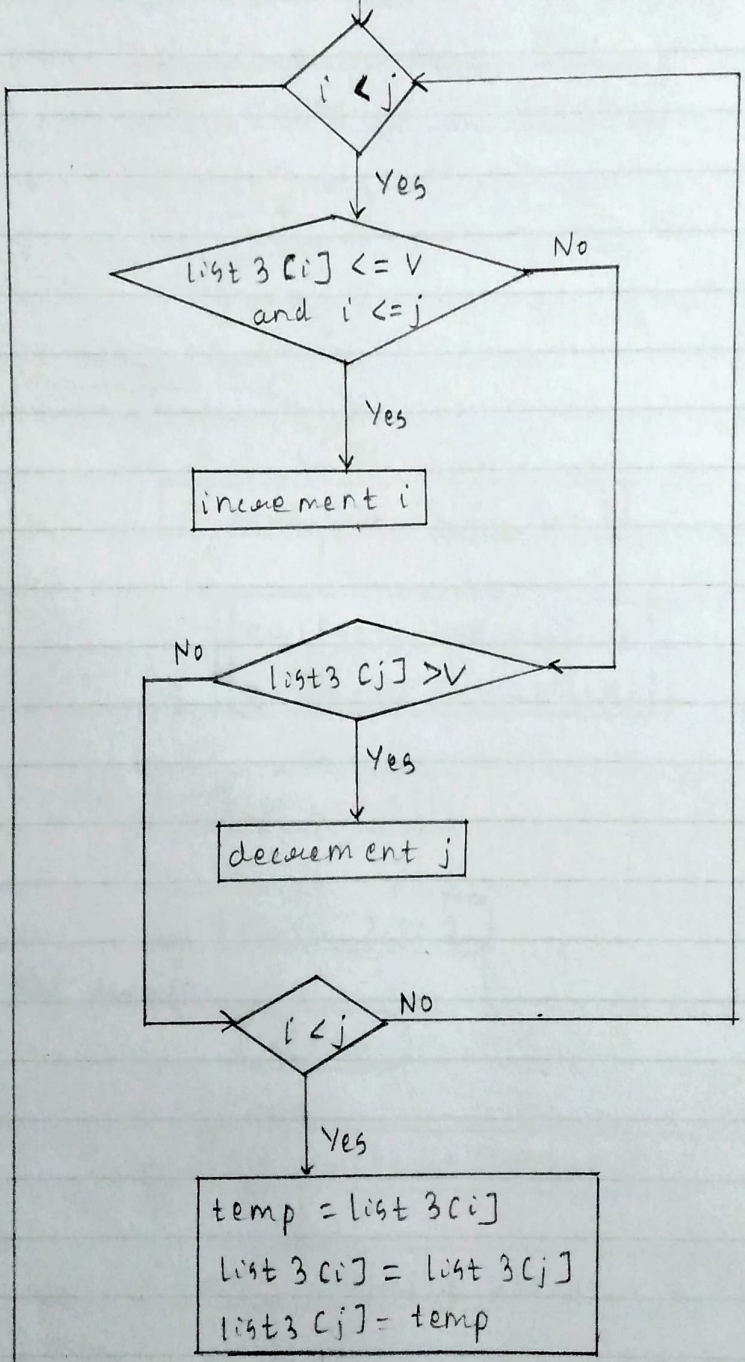 i < j
Yes
list 3 [i] <= V
and i <= j
No
Yes
increment i
No
list3 [j] >V
Yes
decrement j
i < j
No
Yes
temp = list 3[i]
list 3 [i] = list 3[j]
list3 [j] = temp